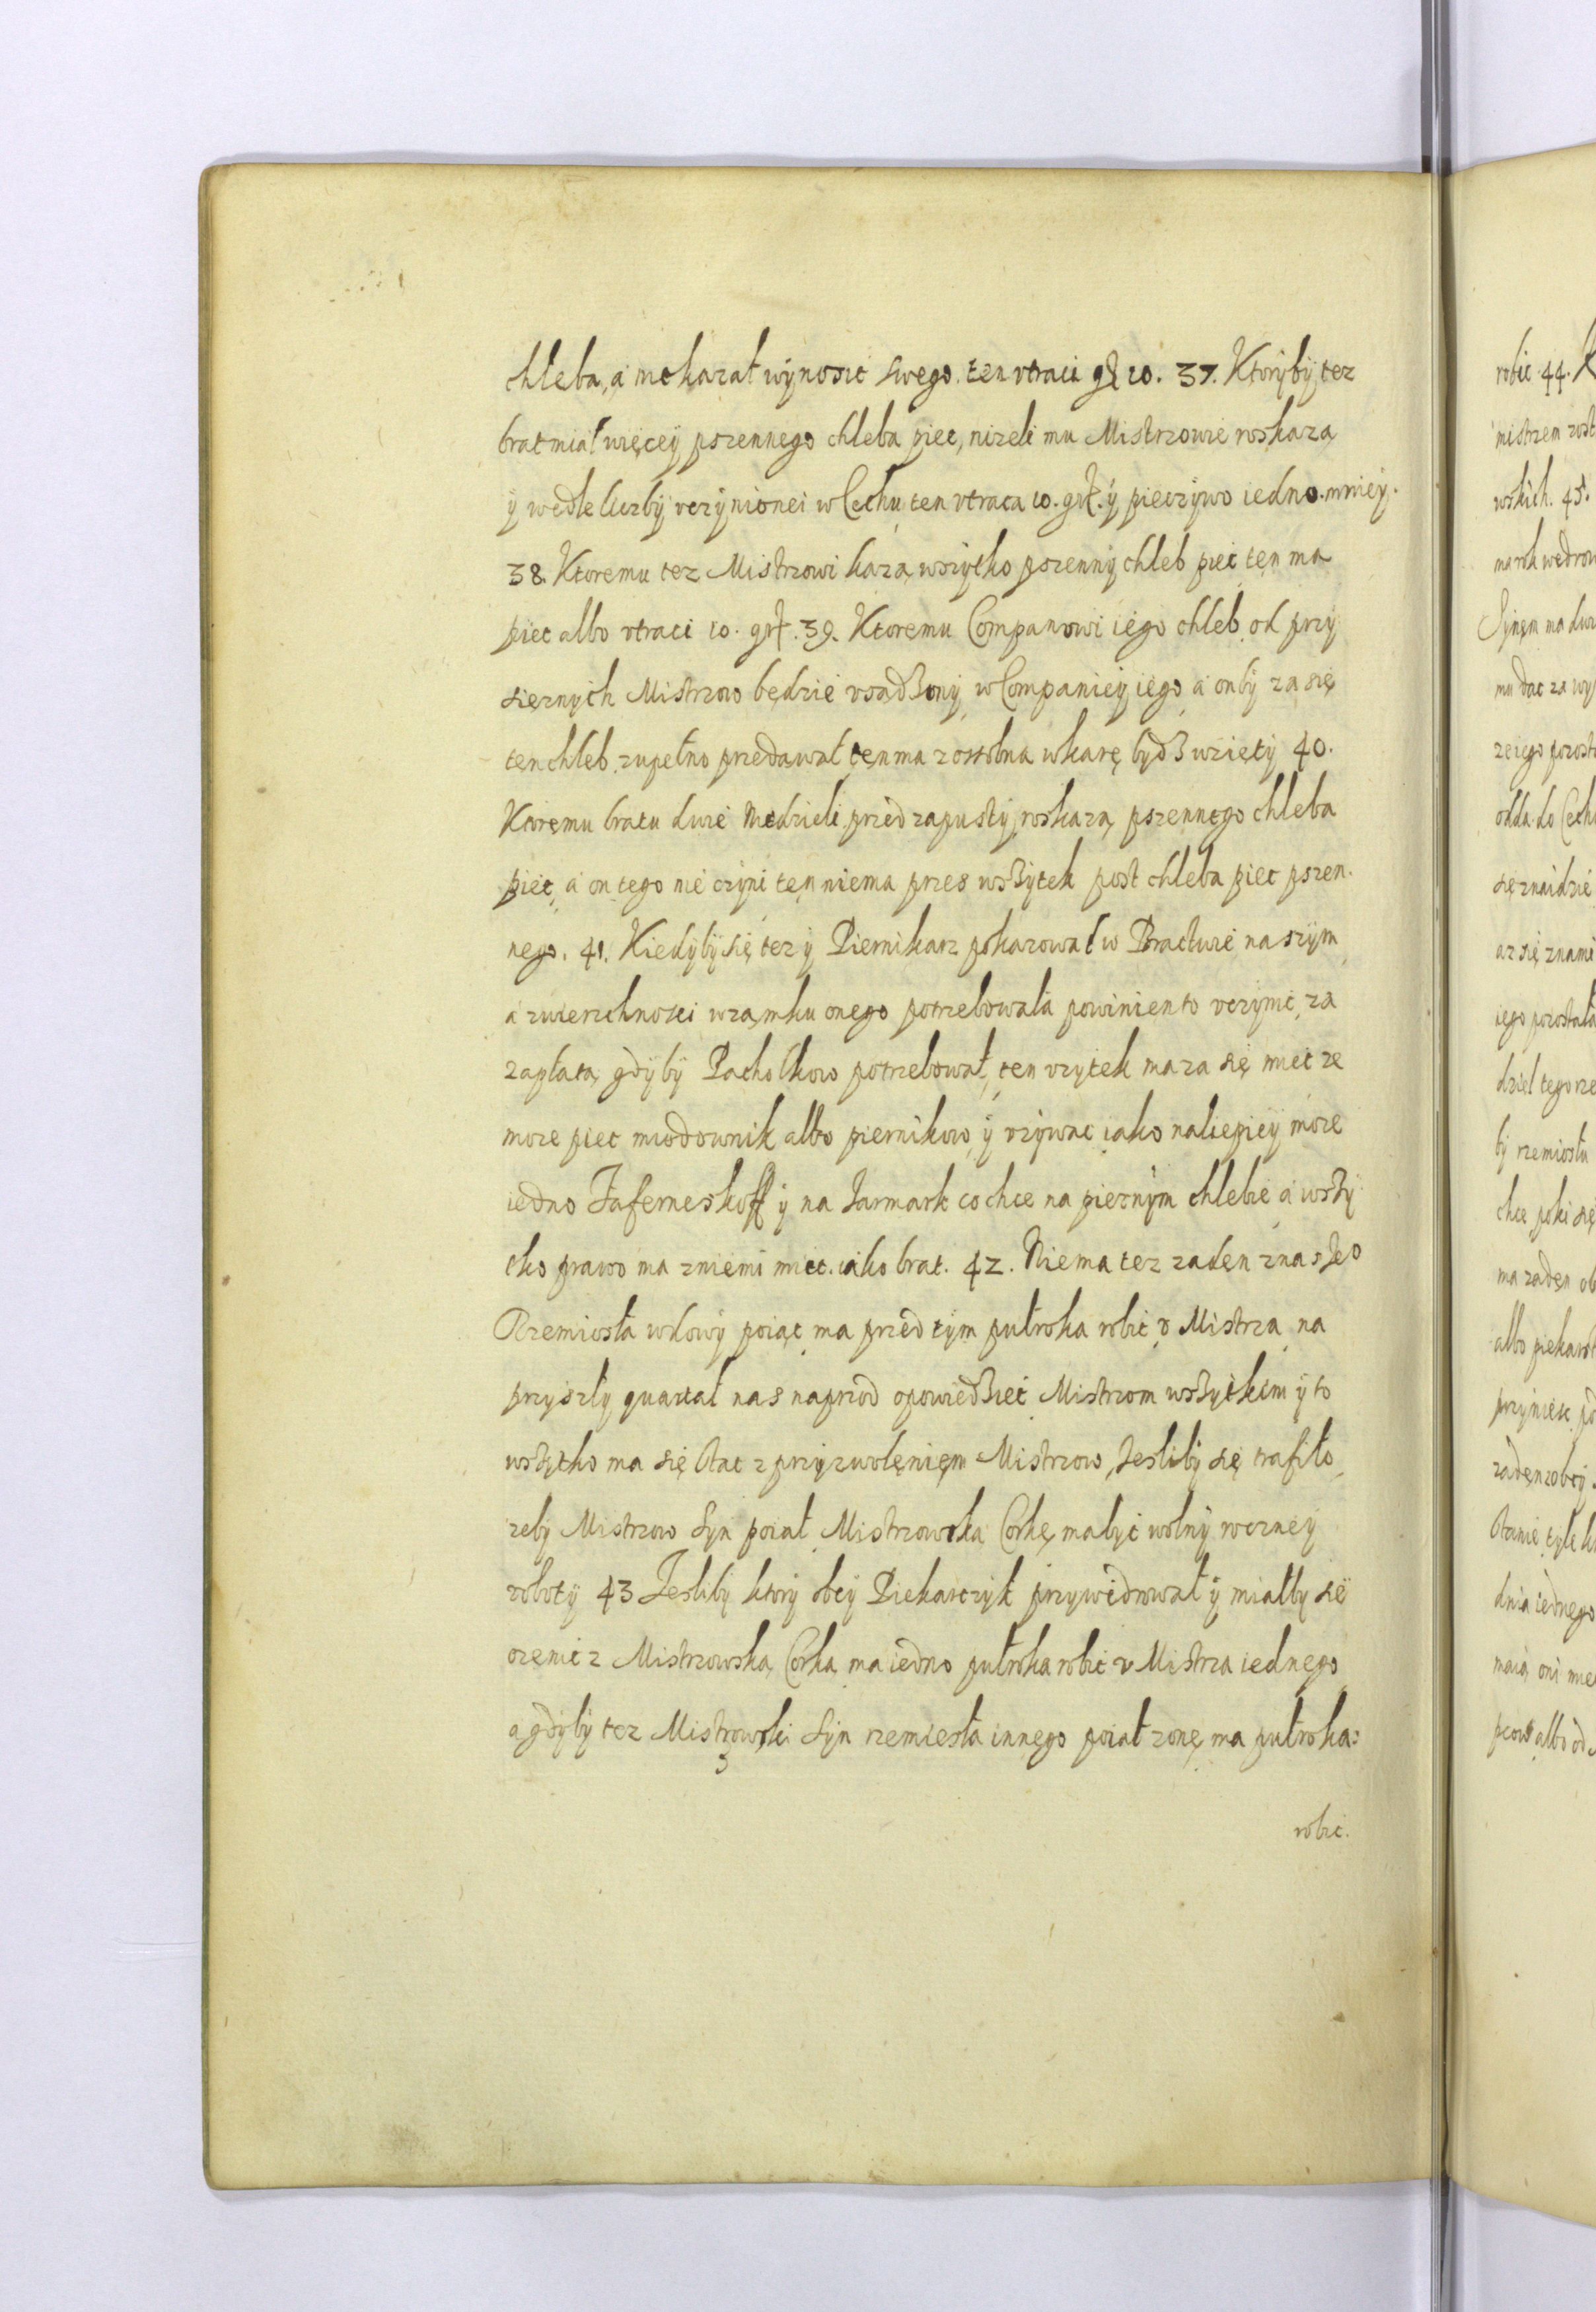 chleba, a niekazał wynosic swego. ten vtraci gr 10. 37. Ktoryby tez
brat miał więcey pszennego chleba piec, nizeli mu Mistrzowie roskazą
y wedle liczby vczynionei w Cechu ten vtraca 10. gr. y pieczywo iedno mniey.
38. Ktoremu tez Mistrzowi kazą wszytko pszenny chleb piec ten ma
piec albo vtraci 10. gr. 39. Ktoremu Companowi iego chleb od przy
sięznych Mistrzow będzie vsadzony w Companiey iego a onby zasię
ten chleb zupełno przedawał ten ma zosobna w karę bydz wzięty 40.
Ktoremu bratu dwie Niedzieli przed zapusty roskazą pszennego chleba
piec, a on tego nie czyni ten niema przes wszytek post chleba piec pszen.
nego. 41. Kiedyby się tez y Piernikarz pokazował w Bractwie naszym
a zwierzchnosci w zamku onego potrzebowała powinien to vczynic, za
zapłatą gdyby Pachołkow potrzebował, ten vzytek ma za się miec ze
moze piec miodownik albo piernikow, y vzywac iako naliepiey moze
iedno Faferneskoff y na Jarmark co chce na pieznym chlebie a wszy
tko prawo ma zniemi miec. iako brat. 42. Niema tez zaden znasze°
Rzemiosła wdowy poiąc ma przed tym pułroka robic v Mistrza na
przyszły quartał nas naprzod opowiedziec Mistrzom wszytkim y to
wszytko ma się stac z przyzwolęnięm Mistrzow, Jesliby się trafiło
zeby Mistrzow Syn poiał Mistrzowską Corkę, ma byc wolny roczney
roboty 43 Jesliby ktory obcy Piekarczyk przywędrował y miałby się
ozenic z Mistrzowską Corką ma iedno pułroka robic v Mistrza iednego
a gdyby tez Mistrzowski Syn rzemiesła innego poiał zonę ma pułroka:
robic.